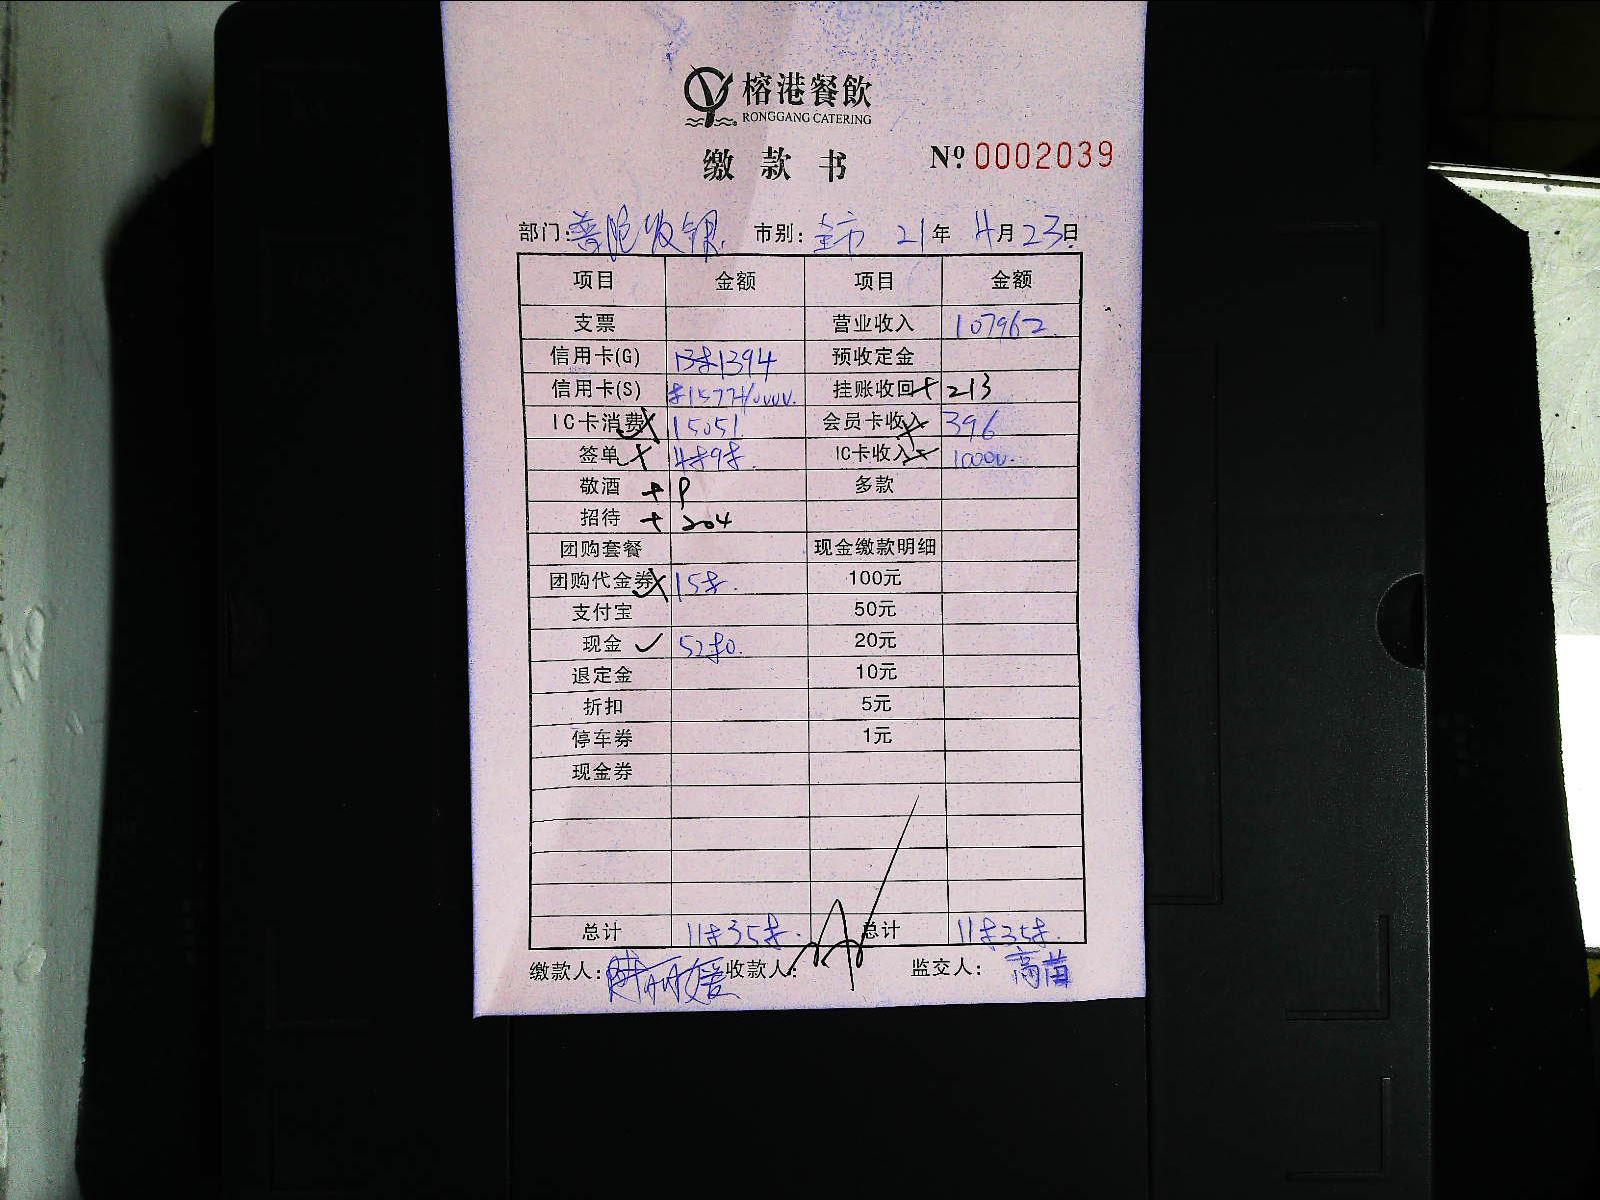 榕港餐飲
RONGGANG CATERING
缴款书 Nº 0002039
部门: 普陀收银 市别: 全市 21年 4月 23日
项目 金额 项目 金额
支票 营业收入 107962
信用卡(G) 预收定金
信用卡(S) 挂账收回 + 213
IC卡消费 15051 会员卡收入 396
签单 IC卡收入 10000
敬酒 + 多款
招待 + 204
团购套餐 现金缴款明细
团购代金券 100元
支付宝 50元
现金 ✓ 20元
退定金 10元
折扣 5元
停车券 1元
现金券
总计 总计
缴款人: 收款人: 监交人: 高苗